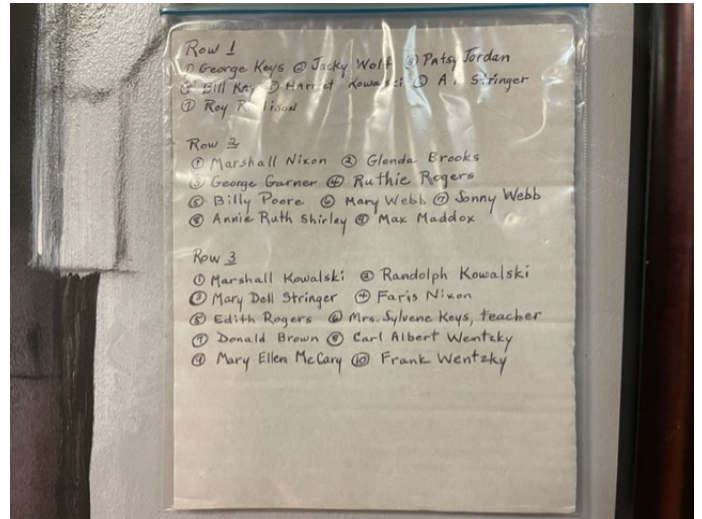 Row 1
① George Keys ② Jacky Wolf ③ Patsy Jordan
④ Bill Kay ⑤ Kowalski ⑥ Stringer
⑦ Roy
Row 2
① Marshall Nixon ② Glenda Brooks
③ George Garner ④ Ruthie Rogers
⑤ Billy Poore ⑥ Mary Webb ⑦ Sonny Webb
⑧ Annie Ruth Shirley ⑨ Max Maddox
Row 3
① Marshall Kowalski ② Randolph Kowalski
③ Mary Dell Stringer ④ Faris Nixon
⑤ Edith Rogers ⑥ Mrs. Sylvene Keys, teacher
⑦ Donald Brown ⑧ Carl Albert Wentzky
⑨ Mary Ellen McCary ⑩ Frank Wentzky